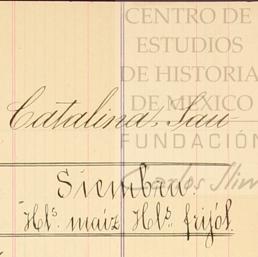 CENTRO DE
ESTUDIOS
DE HISTORIA
DE MEXICO
Catalina, San
FUNDACIÓN
Carlos Slim
Siembra.
Hls. maíz Hls. frijól.